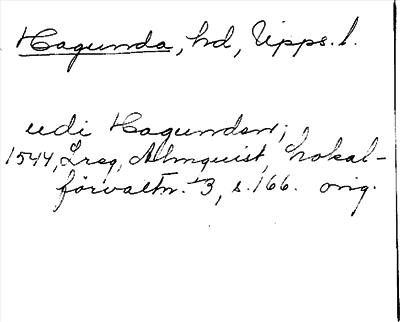 Hagunda, hd, Upps. l.
udi Hagunden;
1544, Lreg, Almquist, Lokal-
förvaltn. 3, s. 166. orig.